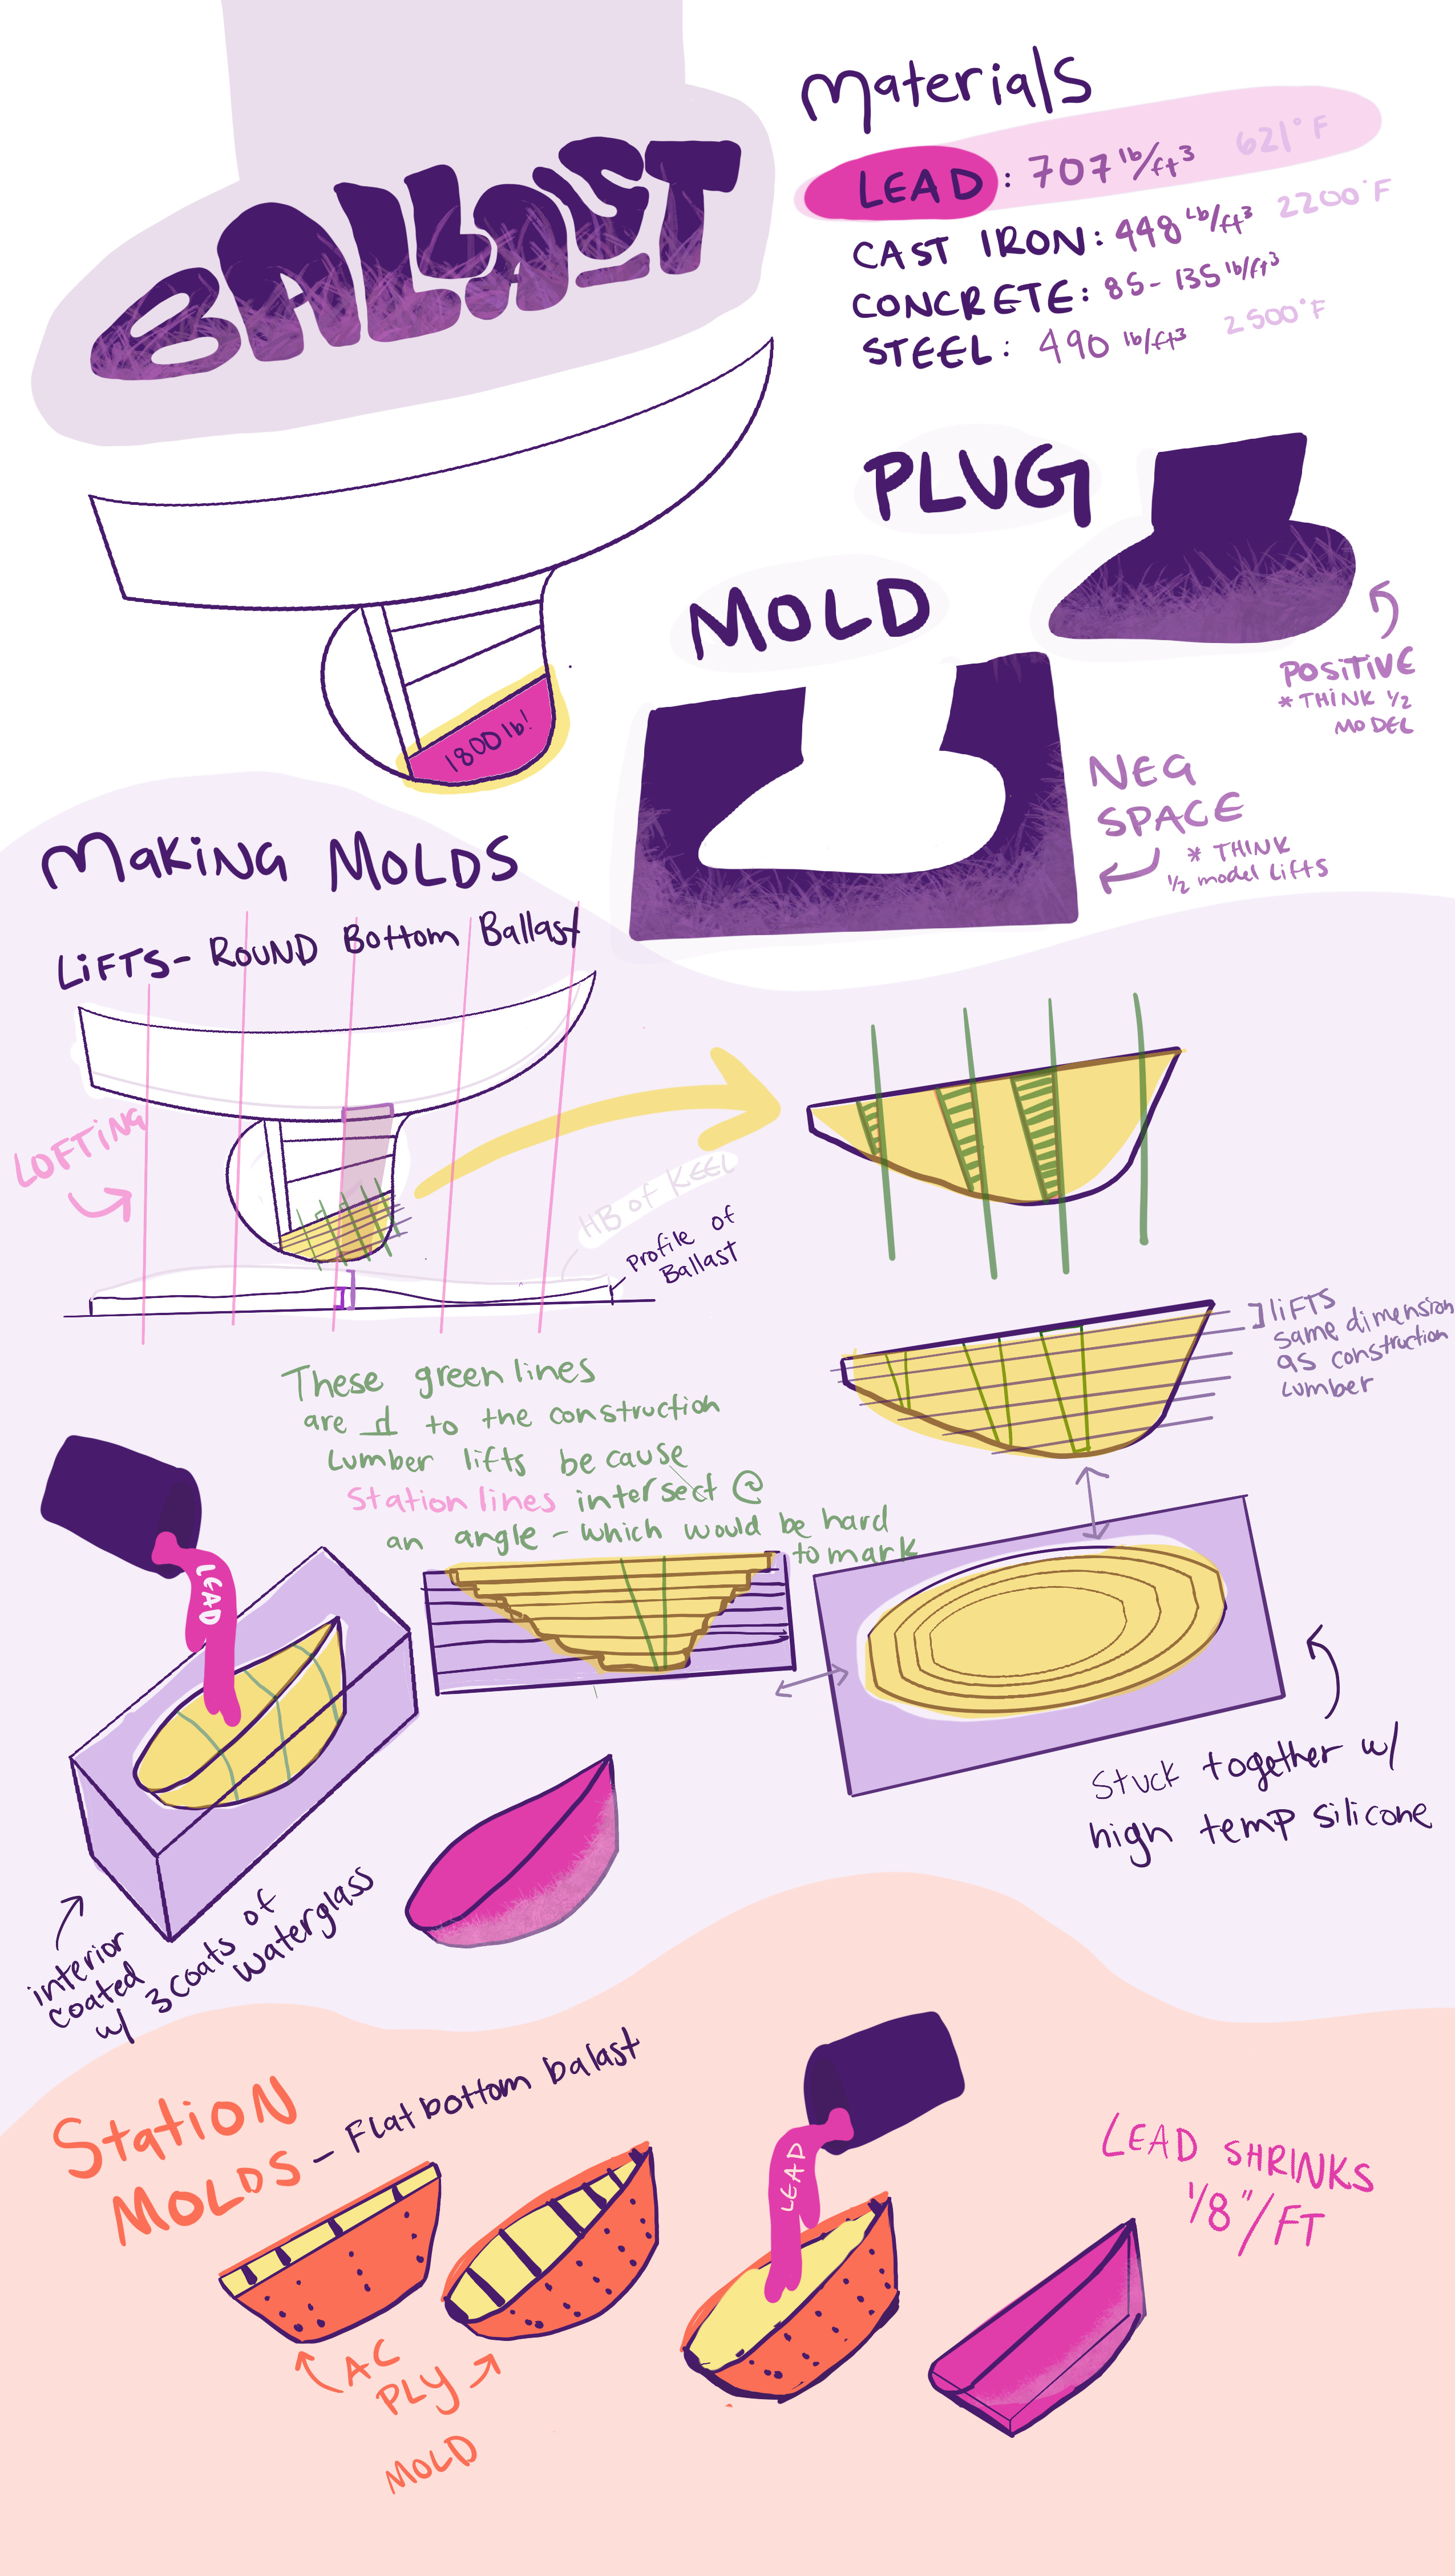 BALLAST
Materials
LEAD: 707 lb/ft³ 621°F
CAST IRON: 448 Lb/ft³ 2200°F
CONCRETE: 85-135 lb/ft³
STEEL: 490 lb/ft³ 2500°F
1800 lb!
PLUG
POSITIVE
* THINK 1/2
MODEL
MOLD
NEG
SPACE
* THINK
1/2 model Lifts
Making MOLDS
LiFTS- ROUND Bottom Ballast
LOFTING
HB of KEEL
Profile of
Ballast
]liFTS
same dimension
as construction
lumber
These green lines
are ⊥ to the construction
Lumber lifts be cause
Station lines intersect @
an angle - which would be hard
to mark
LEAD
Stuck together w/
high temp silicone
interior
coated
w/ 3 coats of
waterglass
Station
MOLDS - Flat bottom balast
AC
PLY
MOLD
LEAD
LEAD SHRINKS
1/8"/FT